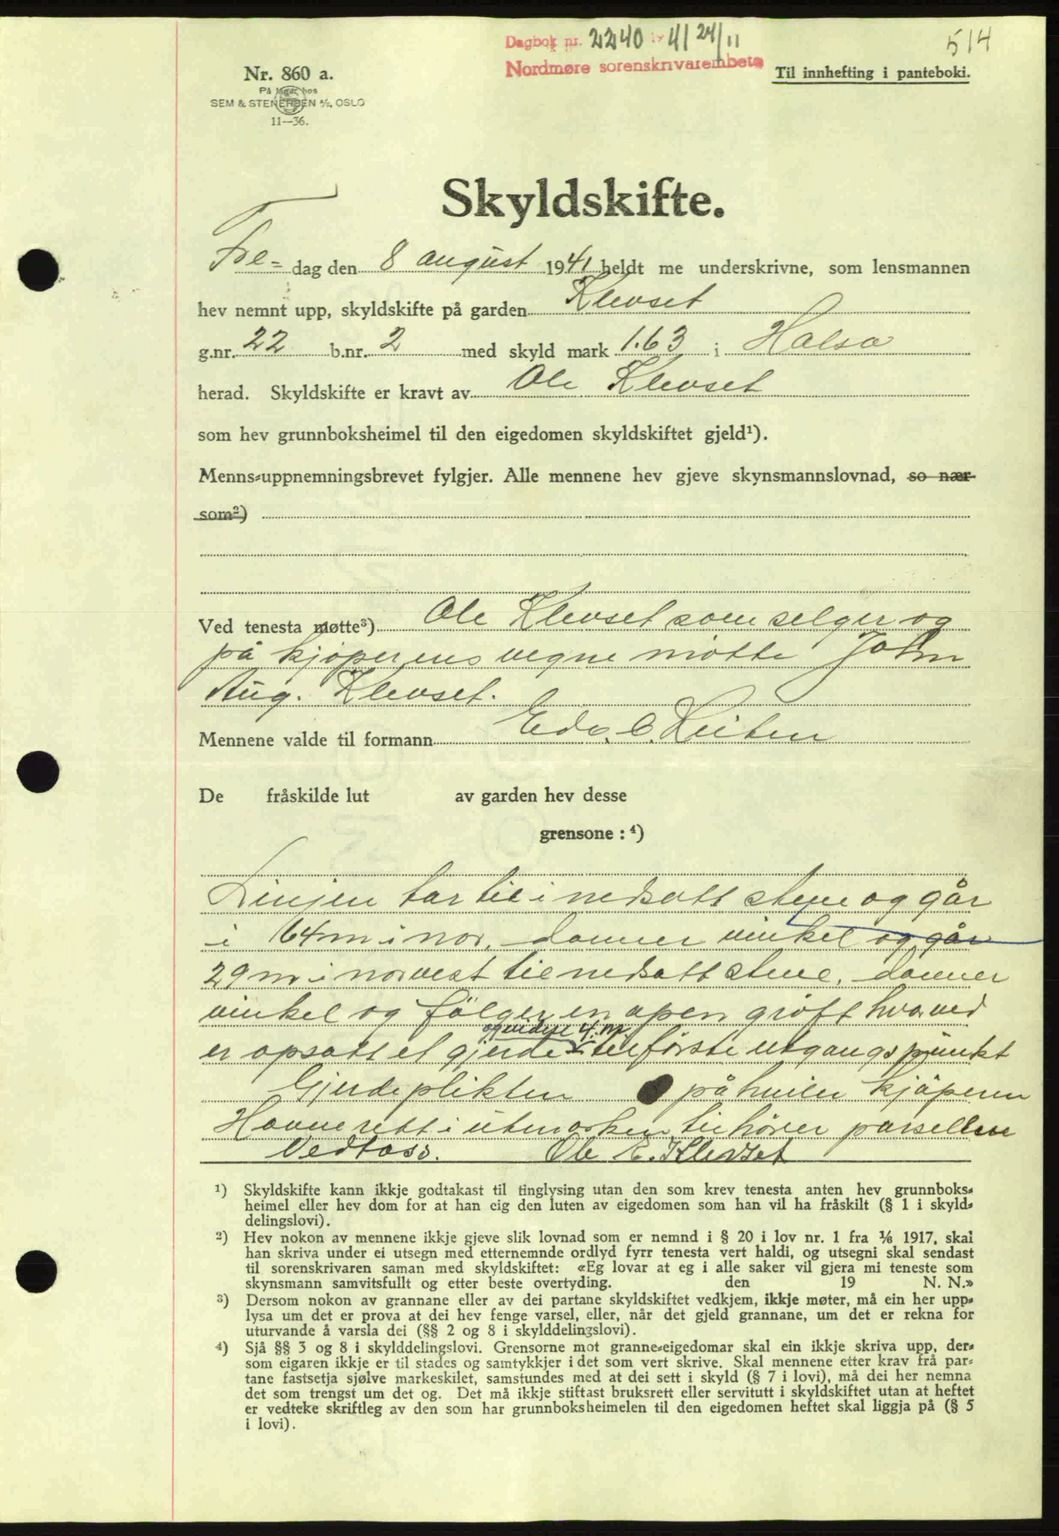 Dagbok nr. 2240 19 41 24/11
514
Nordmøre sorenskrivarembete
Til innhefting i panteboki.
Nr. 860 a.
På lager hos
SEM & STENERSEN A/S, OSLO
11—36.
Skyldskifte.
Fre= dag den 8 august 1941 heldt me underskrivne, som lensmannen
hev nemnt upp, skyldskifte på garden Klevset
g.nr. 22 b.nr. 2 med skyld mark 1.63 i Halsa
herad. Skyldskifte er kravt av Ole Klevset
som hev grunnboksheimel til den eigedomen skyldskiftet gjeld¹).
Menns-uppnemningsbrevet fylgjer. Alle mennene hev gjeve skynsmannslovnad, so nær-
som²)
Ved tenesta møtte³) Ole Klevset som selger og
på kjøperens vegne møtte John
Aug. Klevset.
Mennene valde til formann Edv. C. Leiten
De fråskilde lut av garden hev desse
grensone : ⁴)
Linjen tar til i nedsatt stene og går
i 64 m i nor, danner vinkel og går
29 m i norvest til nedsatt stene, danner
vinkel og følger en open grøft hvorved
og vidre 4. m
er opsatt et gjerde til første utgangspunkt
Gjerdeplikten påhviler kjøperen
Havnerett i utmarken tilhører parsellen
Vedtass. Ole E. Klevset
¹) Skyldskifte kann ikkje godtakast til tinglysing utan den som krev tenesta anten hev grunnboks-
heimel eller hev dom for at han eig den luten av eigedomen som han vil ha fråskilt (§ 1 i skyld-
delingslovi).
²) Hev nokon av mennene ikkje gjeve slik lovnad som er nemnd i § 20 i lov nr. 1 fra 1/6 1917, skal
han skriva under ei utsegn med etternemnde ordlyd fyrr tenesta vert haldi, og utsegni skal sendast
til sorenskrivaren saman med skyldskiftet: «Eg lovar at eg i alle saker vil gjera mi teneste som
skynsmann samvitsfullt og etter beste overtyding. den 19 N. N.»
³) Dersom nokon av grannane eller av dei partane skyldskiftet vedkjem, ikkje møter, må ein her upp-
lysa um det er prova at dei hev fenge varsel, eller, når det gjeld grannane, um det er rekna for
uturvande å varsla dei (§§ 2 og 8 i skylddelingslovi).
⁴) Sjå §§ 3 og 8 i skylddelingslovi. Grensorne mot granne-eigedomar skal ein ikkje skriva upp, der-
som eigaren ikkje er til stades og samtykkjer i det som vert skrive. Skal mennene etter krav frå par-
tane fastsetja sjølve markeskilet, samstundes med at dei sett i skyld (§ 7 i lovi), må dei her nemna
det som trengst um det og. Det må ikkje stiftast bruksrett eller servitutt i skyldskiftet utan at heftet
er vedteke skriftleg av den som har grunnboksheimelen til den eigedomen heftet skal liggja på (§ 5
i lovi).